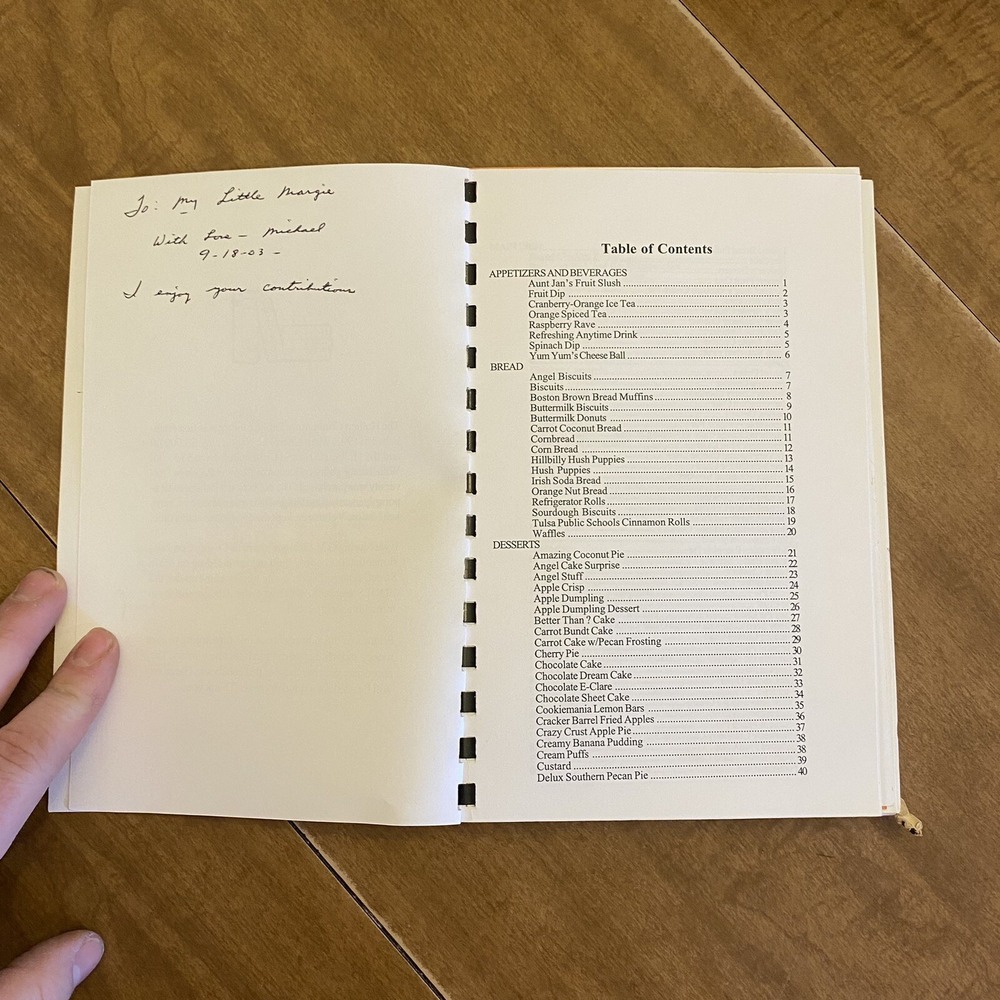 To: My Little Margie
With Love - Michael
9-18-03 -
I enjoy your contributions
Table of Contents
APPETIZERS AND BEVERAGES
Aunt Jan's Fruit Slush 1
Fruit Dip 2
Cranberry-Orange Ice Tea 3
Orange Spiced Tea 3
Raspberry Rave 4
Refreshing Anytime Drink 5
Spinach Dip 5
Yum Yum's Cheese Ball 6
BREAD
Angel Biscuits 7
Biscuits 7
Boston Brown Bread Muffins 8
Buttermilk Biscuits 9
Buttermilk Donuts 10
Carrot Coconut Bread 11
Cornbread 11
Corn Bread 12
Hillbilly Hush Puppies 13
Hush Puppies 14
Irish Soda Bread 15
Orange Nut Bread 16
Refrigerator Rolls 17
Sourdough Biscuits 18
Tulsa Public Schools Cinnamon Rolls 19
Waffles 20
DESSERTS
Amazing Coconut Pie 21
Angel Cake Surprise 22
Angel Stuff 23
Apple Crisp 24
Apple Dumpling 25
Apple Dumpling Dessert 26
Better Than ? Cake 27
Carrot Bundt Cake 28
Carrot Cake w/Pecan Frosting 29
Cherry Pie 30
Chocolate Cake 31
Chocolate Dream Cake 32
Chocolate E-Clare 33
Chocolate Sheet Cake 34
Cookiemania Lemon Bars 35
Cracker Barrel Fried Apples 36
Crazy Crust Apple Pie 37
Creamy Banana Pudding 38
Cream Puffs 38
Custard 39
Delux Southern Pecan Pie 40